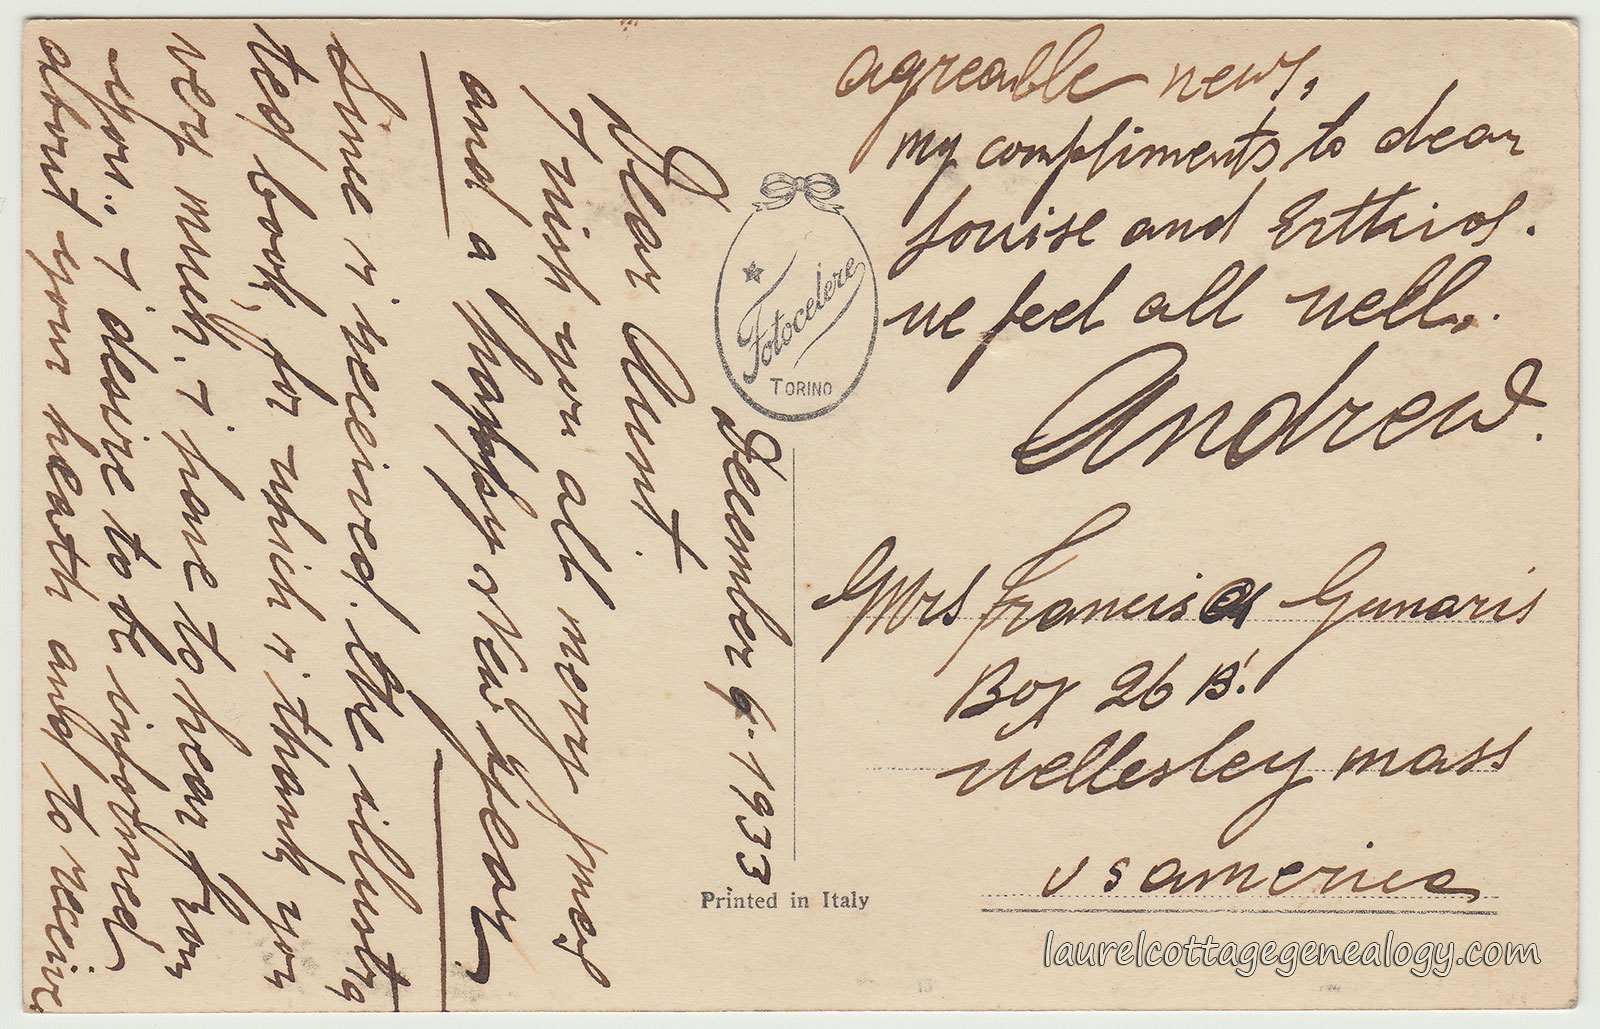 December 6-1933
Dear Aunt.
I wish you all merry xmas
and a happy New year.
Since I received the illustra
ted book, for which I thank you
very much. I have to hear from
you.. I desire to be informed
about your heath and to receive
agreable news,
my compliments to dear
Louise and
we feel all well..
Andrew.
Fotocelere
TORINO
Mrs Francisca Gunaris
Box 26 B.
Wellesley mass
U S america
Printed in Italy
laurelcottagegenealogy.com